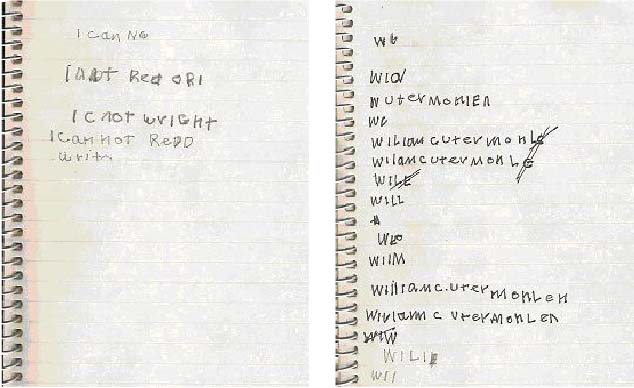 I CAN NO
I NOT ReD ORI
I C NOT WRIGHT
I CAN NOT REDD
writ
WG
WIO/
WUTERMOHLEN
WU
WILIAMCUTERMOHLE
WILAMCUTERMOHLE
WILL
WILL
WLO
WIIM
WilliAMC.UTERMOHLEN
WiyliAMC UTERMOHLEN
WTW
WILLIE
WII